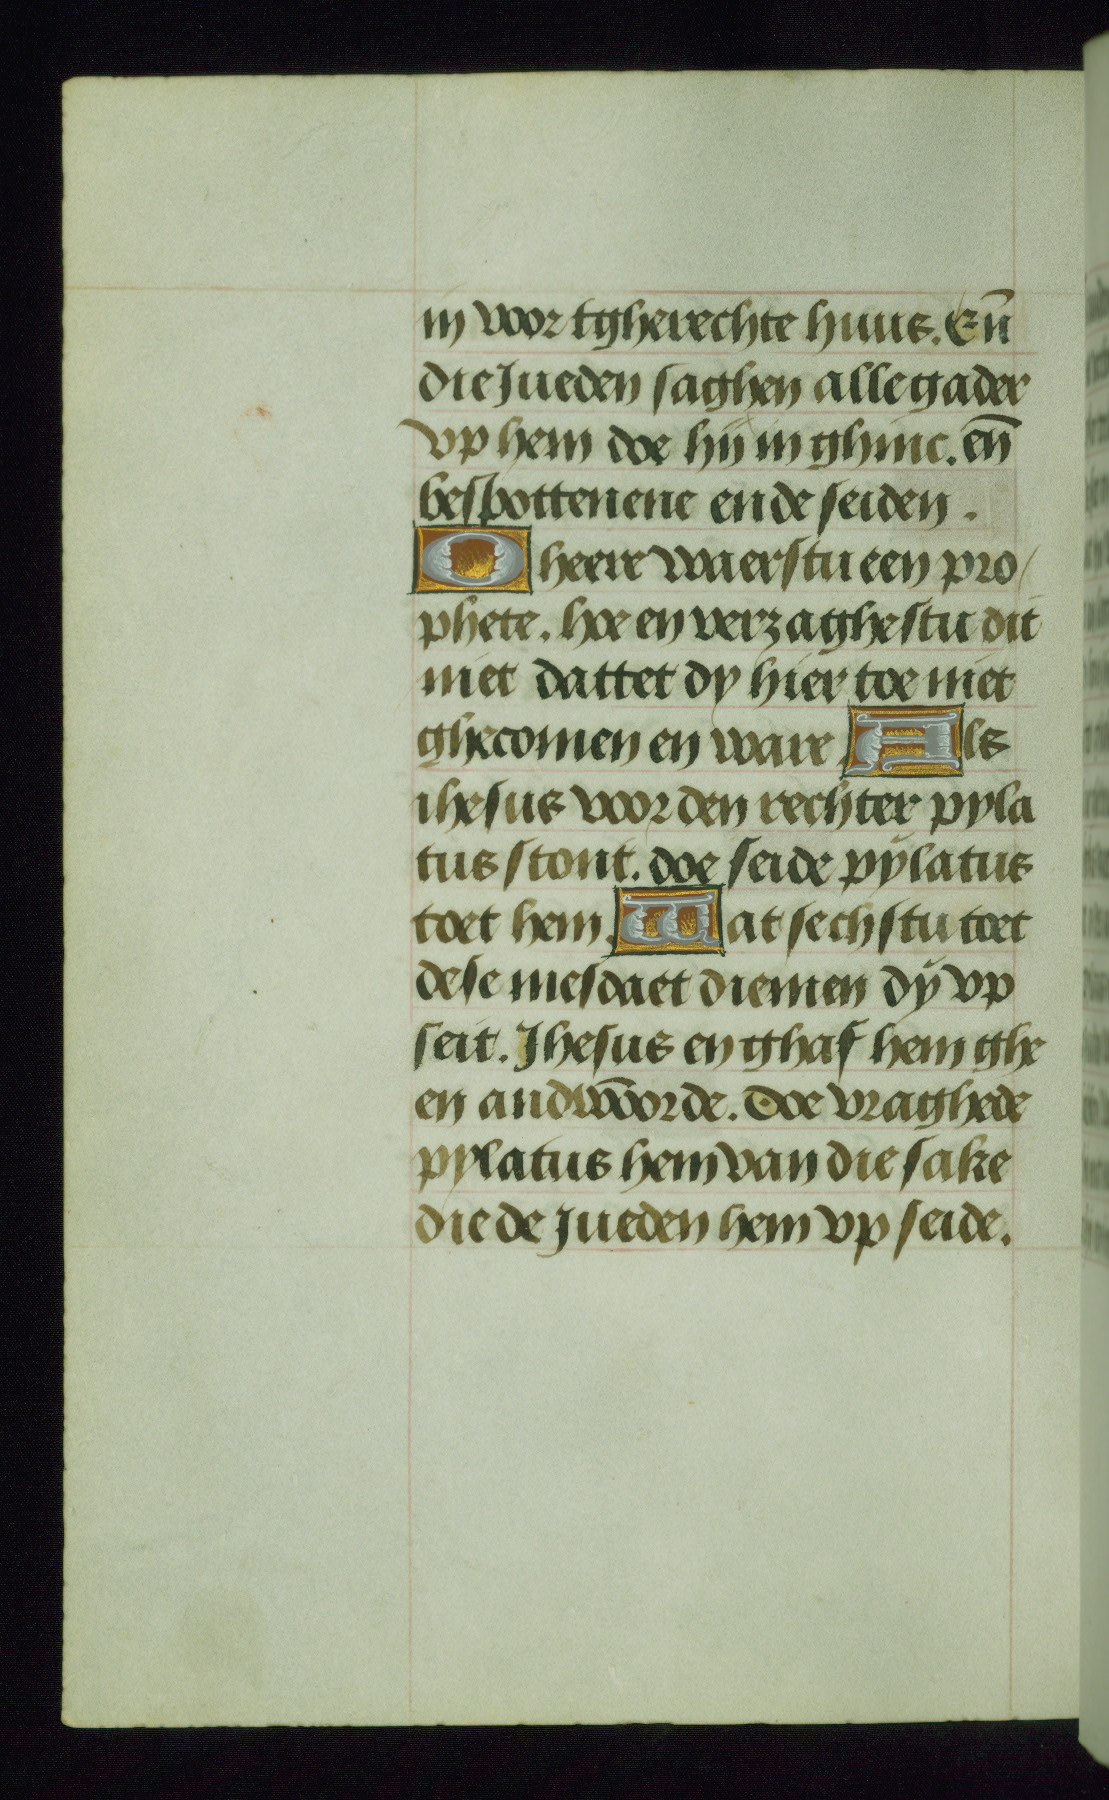 in voor tgherechte huus. En̄
die Jueden saghen allegader
vp hem doe hij in ghinc. en̄
bespottenene ende seiden.
O heere waerstu een pro/
phete. hoe en verzaghestu dit
niet dattet dy hier toe niet
ghecomen en ware. Als
ihesus voor den rechter pyla
tus stont. doe seide pÿlatus
toet hem. Wat sechstu toet
dese mesdaet diemen dÿ vp
seit. Jhesus en ghaf hem ghe
en andwoorde. Doe vraghede
pylatus hem van die sake
die de Jueden hem vp seide.